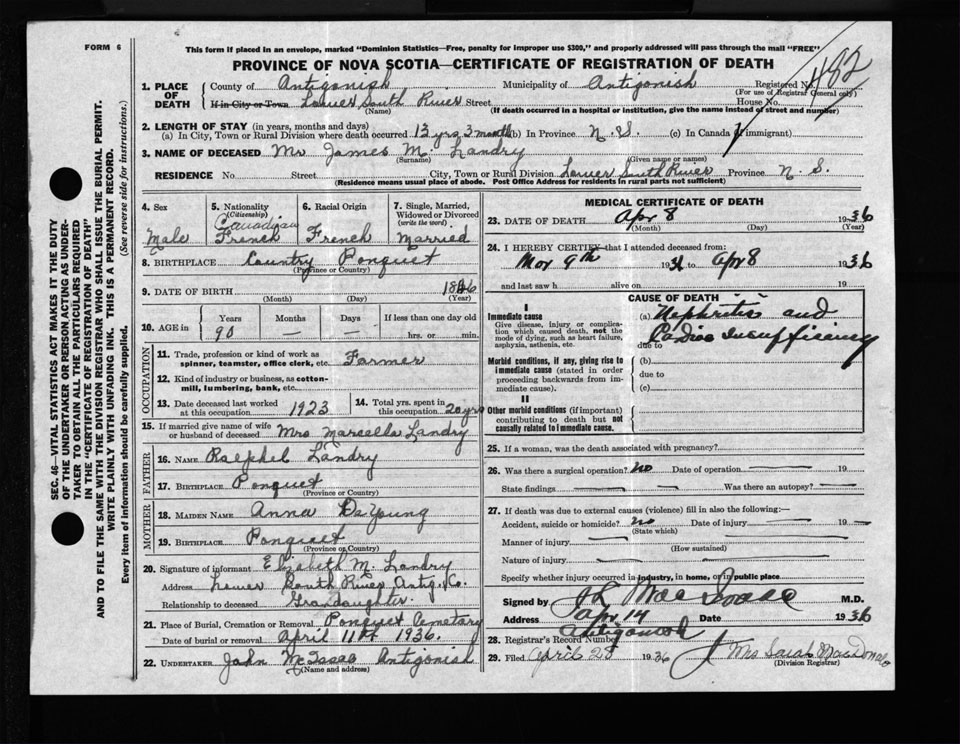 FORM 6
This form if placed in an envelope, marked "Dominion Statistics—Free, penalty for improper use $300," and properly addressed will pass through the mail "FREE"
PROVINCE OF NOVA SCOTIA—CERTIFICATE OF REGISTRATION OF DEATH
482
1. PLACE OF DEATH
County of Antigonish Municipality of Antigonish Registered No.
(For use of Registrar General only)
If in City or Town Lower South River Street House No.
(Name) (If death occurred in a hospital or institution, give the name instead of street and number)
2. LENGTH OF STAY (in years, months and days)
(a) In City, Town or Rural Division where death occurred 13 yrs 3 month (b) In Province N. S. (c) In Canada (if immigrant)
3. NAME OF DECEASED Mr James M. Landry
(Surname) (Given name or names)
RESIDENCE No Street City, Town or Rural Division Lower South River Province N. S.
(Residence means usual place of abode. Post Office Address for residents in rural parts not sufficient)
4. Sex Male
5. Nationality (Citizenship) Canadian French
6. Racial Origin French
7. Single, Married, Widowed or Divorced (write the word) Married
8. BIRTHPLACE Country Pomquet
(Province or County)
9. DATE OF BIRTH 1846
(Month) (Day) (Year)
10. AGE in Years Months Days If less than one day old
90 — — hrs. or min.
OCCUPATION
11. Trade, profession or kind of work as spinner, teamster, office clerk, etc. Farmer
12. Kind of industry or business, as cotton-mill, lumbering, bank, etc.
13. Date deceased last worked at this occupation 1923
14. Total yrs. spent in this occupation 20 yrs
15. If married give name of wife or husband of deceased Mrs Marcella Landry
FATHER
16. NAME Raephel Landry
17. BIRTHPLACE Pomquet
(Province or Country)
MOTHER
18. MAIDEN NAME Anna DeYoung
19. BIRTHPLACE Pomquet
(Province or Country)
20. Signature of informant Elizabeth M. Landry
Address Lower South River Antig. Co.
Relationship to deceased Grandaughter
21. Place of Burial, Cremation or Removal Pomquet Cemetary
Date of burial or removal April 11th 1936.
22. UNDERTAKER John McIsaac Antigonish
(Name and address)
MEDICAL CERTIFICATE OF DEATH
23. DATE OF DEATH Apr 8 1936
(Month) (Day) (Year)
24. I HEREBY CERTIFY that I attended deceased from:
9th to Apr 8 1936
and last saw h alive on 19
CAUSE OF DEATH
I
Immediate cause
Give disease, injury or complication which caused death, not the mode of dying, such as heart failure, asphyxia, asthenia, etc.
(a) Nephritis and Cardiac Insufficiency
due to
Morbid conditions, if any, giving rise to immediate cause (stated in order proceeding backwards from immediate cause).
(b)
due to
(c)
II
Other morbid conditions (if important) contributing to death but not causally related to immediate cause.
25. If a woman, was the death associated with pregnancy?
26. Was there a surgical operation? no Date of operation 19
State findings Was there an autopsy?
27. If death was due to external causes (violence) fill in also the following:—
Accident, suicide or homicide? no Date of injury 19
(State which)
Manner of injury
(How sustained)
Nature of injury
Specify whether injury occurred in industry, in home, or in public place
Signed by MacIsaac M.D.
Address Apr 14 Date 1936
Antigonish
28. Registrar's Record Number
29. Filed April 28 1936 Mrs Sarah MacDonald
(Division Registrar)
SEC. 46—VITAL STATISTICS ACT MAKES IT THE DUTY
OF THE UNDERTAKER OR PERSON ACTING AS UNDER-
TAKER TO OBTAIN ALL THE PARTICULARS REQUIRED
IN THE "CERTIFICATE OF REGISTRATION OF DEATH"
AND TO FILE THE SAME WITH THE DIVISION REGISTRAR WHO SHALL ISSUE THE BURIAL PERMIT.
WRITE PLAINLY WITH UNFADING INK. THIS IS A PERMANENT RECORD.
Every item of information should be carefully supplied. (See reverse side for instructions.)